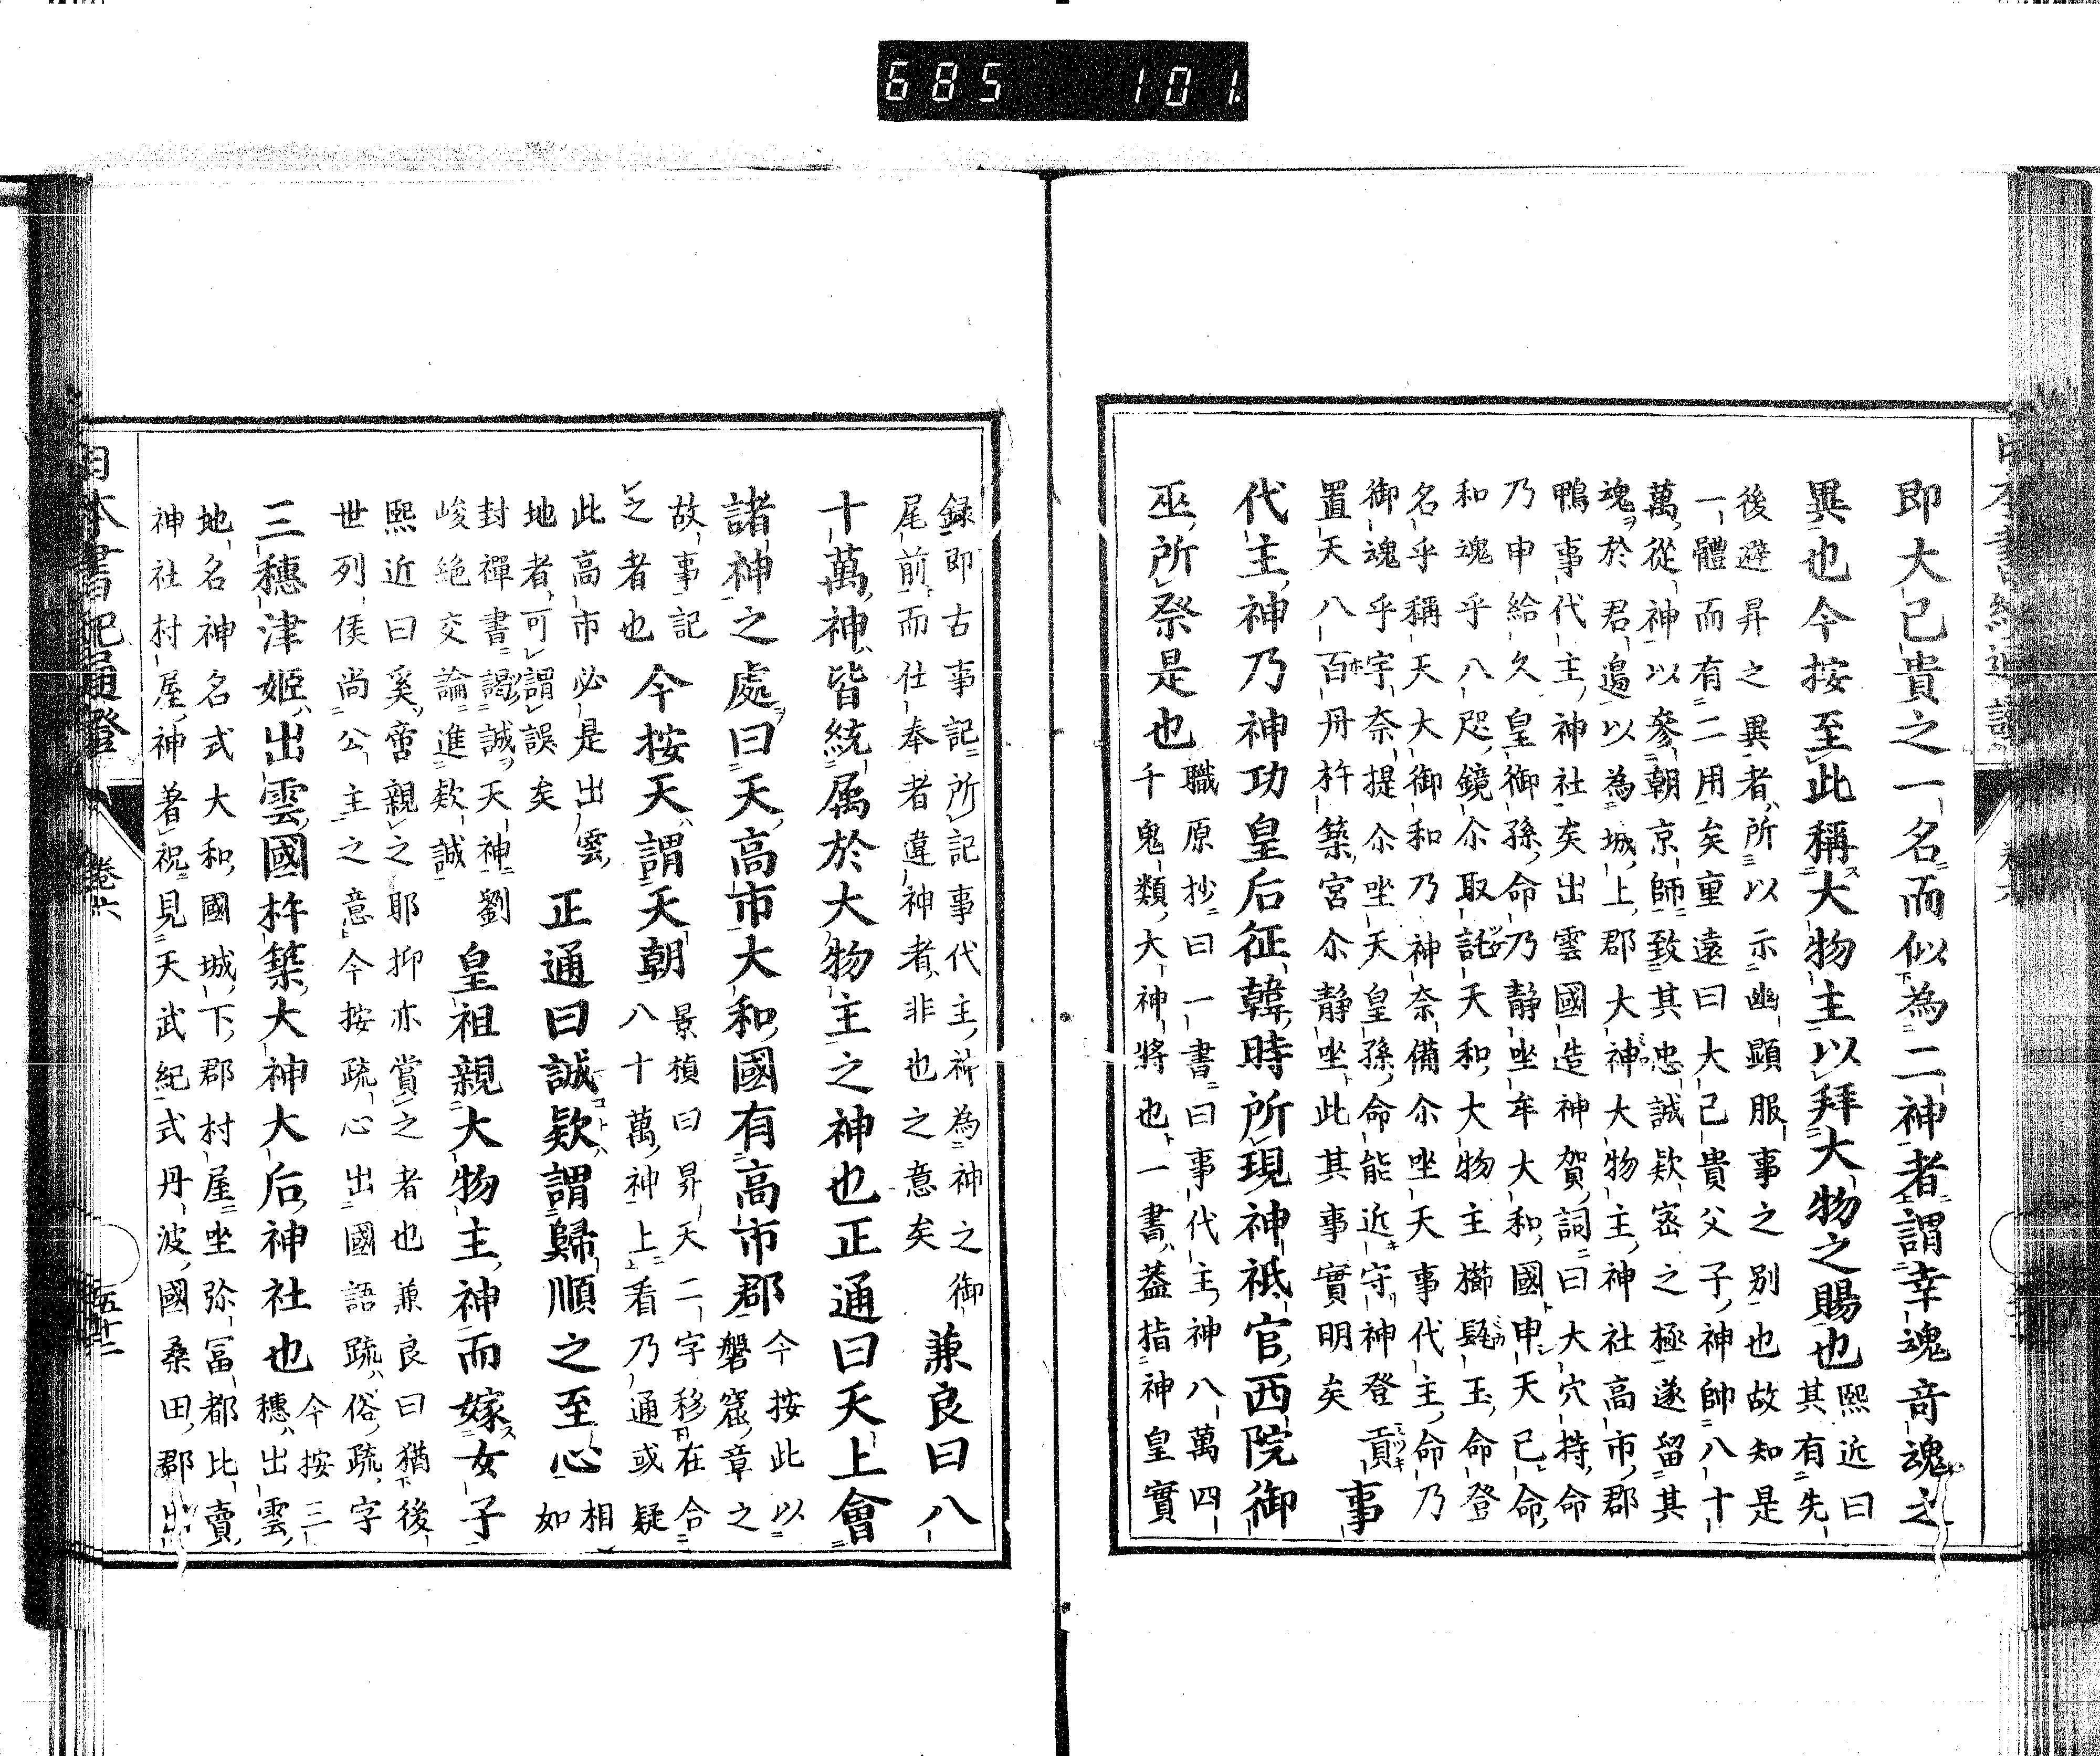 685 101.
即大己貴之一名而似為二神者謂幸魂奇魂之
異也今按至此稱大物主以拜大物之賜也熙近曰
其有先
後避昇之異者所以示幽顯服事之别也故知是
一體而有二用矣重遠曰大己貴父子神帥八十
萬從神以參朝京師致其忠誠欵密之極遂留其
魂於君邉以為城上郡大神大物主神社高市郡
鴨事代主神社矣出雲國造神賀詞曰大穴持命
乃申給久皇御孫命乃靜坐牟大和國申天己命
和魂乎八咫鏡尒取託天和大物主櫛𤭖玉命登
名乎稱天大御和乃神奈備尒坐天事代主命乃
御魂乎宇奈提尒坐天皇孫命能近守神登貢
置天八百丹杵築宮尒靜坐此其事實明矣
事
代主神乃神功皇后征韓時所現神祇官西院御
巫所祭是也
職原抄曰一書曰事代主神八萬四
千鬼類大神將也一書蓋指神皇實
録即古事記所記事代主神為神之御
尾前而仕奉者違神者非也之意矣
兼良曰八
十萬神皆統属於大物主之神也正通曰天上會
諸神之處曰天高市大和國有高市郡
今按此以
磐窟章之
故事記
之者也
今按天謂天朝
景楨曰昇天二字移在合
八十萬神上看乃通或疑
此高市必是出雲
地者可謂誤矣
正通曰誠欵謂歸順之至心
相
如
封禪書謁誠天神劉
峻絶交論進欵誠
皇祖親大物主神而嫁女子
熙近曰奚啻親之耶抑亦賞之者也兼良曰猶後
世列侯尚公主之意今按疏心出國語疏俗疏字
三穗津姫出雲國杵築大神大后神社也
今按三
穗出雲
地名神名式大和國城下郡村屋坐弥冨都比賣
神社村屋神著祝見天武紀式丹波國桑田郡出
日本書紀通證
卷六
五十二